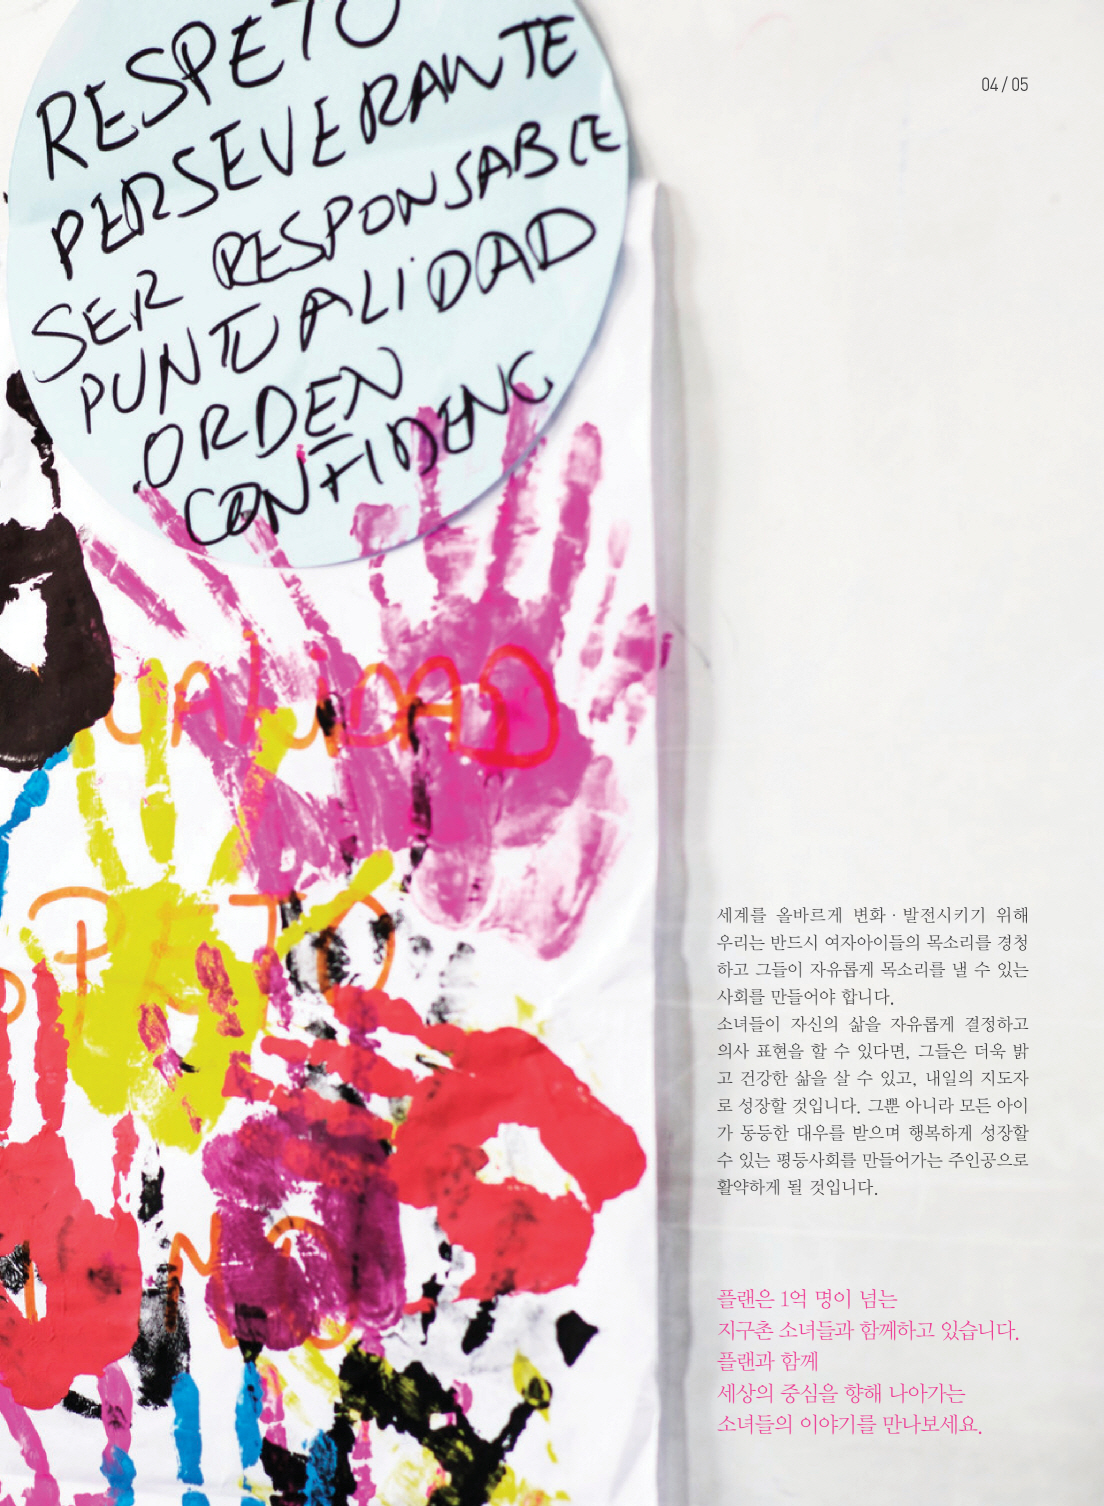 04 / 05
RESPETO
PERSEVERANTE
SER RESPONSABLE
PUNTUALIDAD
ORDEN
CONFIDENC
UALIDAD
PETO
세계를 올바르게 변화 · 발전시키기 위해
우리는 반드시 여자아이들의 목소리를 경청
하고 그들이 자유롭게 목소리를 낼 수 있는
사회를 만들어야 합니다.
소녀들이 자신의 삶을 자유롭게 결정하고
의사 표현을 할 수 있다면, 그들은 더욱 밝
고 건강한 삶을 살 수 있고, 내일의 지도자
로 성장할 것입니다. 그뿐 아니라 모든 아이
가 동등한 대우를 받으며 행복하게 성장할
수 있는 평등사회를 만들어가는 주인공으로
활약하게 될 것입니다.
플랜은 1억 명이 넘는
지구촌 소녀들과 함께하고 있습니다.
플랜과 함께
세상의 중심을 향해 나아가는
소녀들의 이야기를 만나보세요.